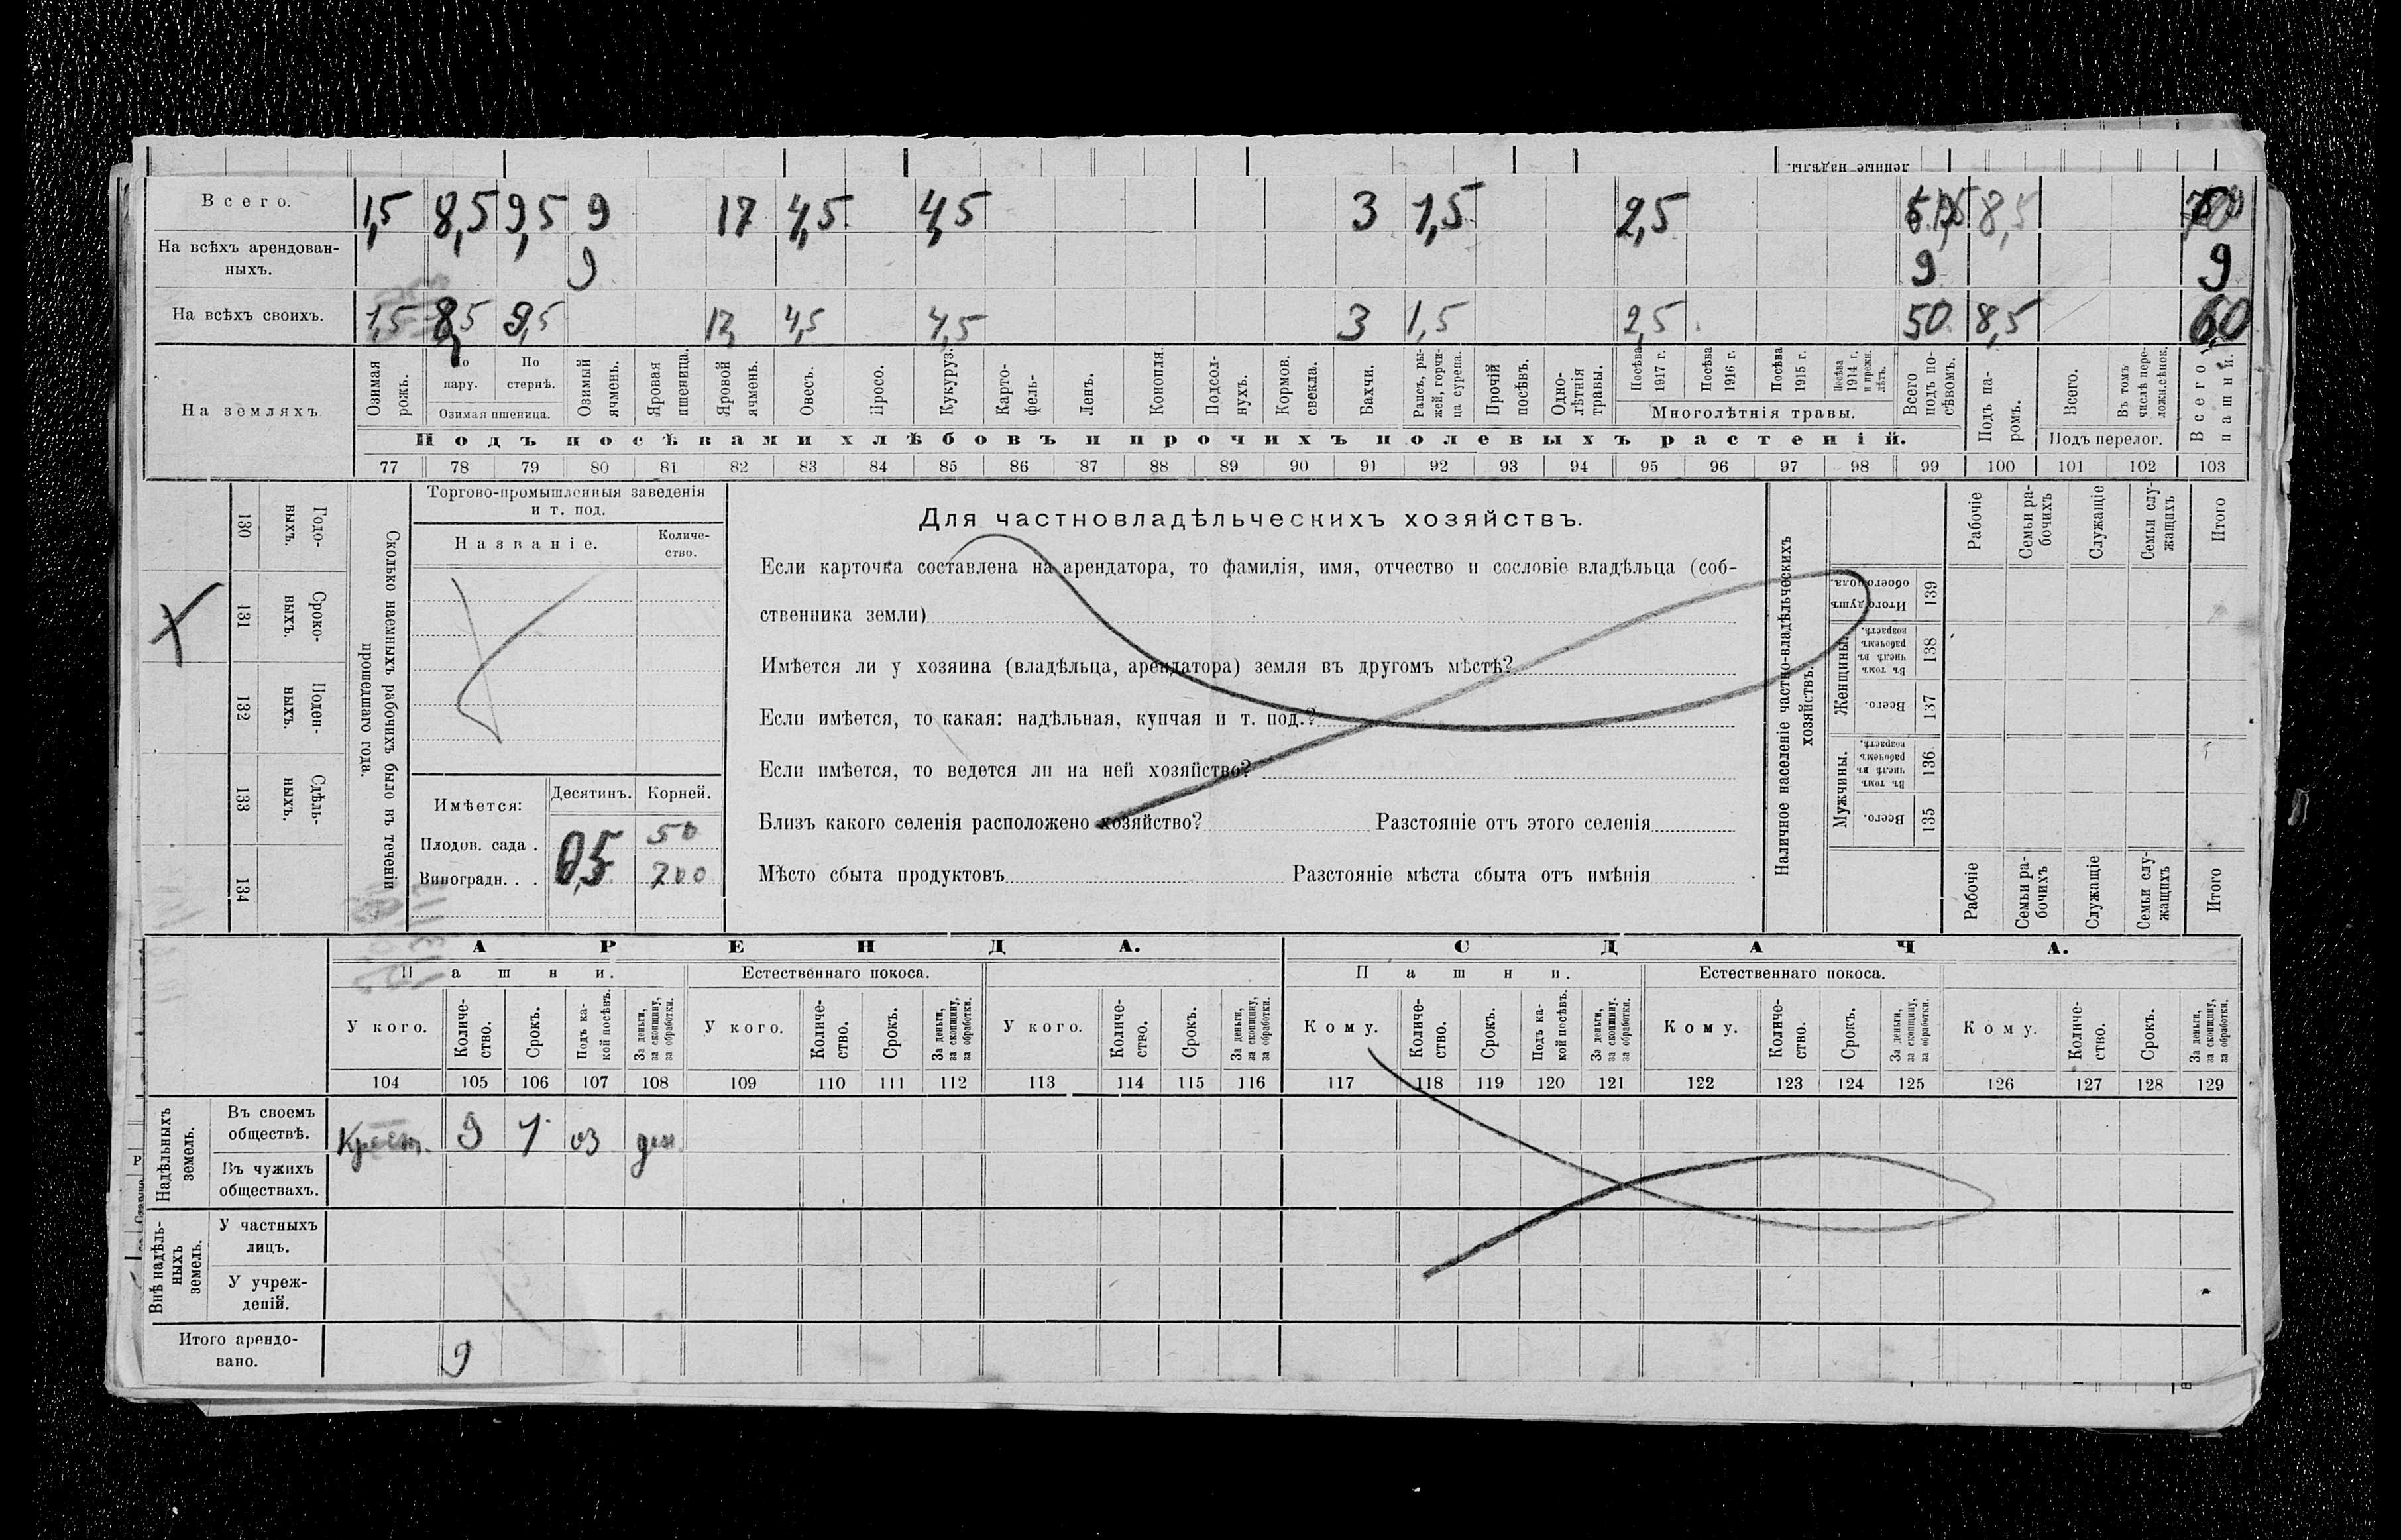 ленные надѣлы.
Всего. 1,5 8,5 9,5 9 17 4,5 4,5 3 1,5 2,5 8,5
На всѣхъ арендован-
ныхъ. 9 9 9
На всѣхъ своихъ. 1,5 8,5 9,5 4,5 4,5 3 1,5 2,5 50 8,5 60
На земляхъ.
Озимая рожь.
По пару.
По стернѣ.
Озимая пшеница.
Озимый ячмень.
Яровая пшеница.
Яровой ячмень.
Овесъ.
Просо.
Кукуруз.
Карто-
фель-
Ленъ.
Конопля.
Подсол-
нухъ.
Кормов. свекла.
Бахчи.
Рапсъ, ры-
жей, горчи-
ца сурепа.
Прочій посѣвъ.
Одно-
лѣтнія травы.
Посѣва 1917 г.
Посѣва 1916 г.
Посѣва 1915 г.
Посѣва 1914 г. и прежн. лѣтъ.
Многолѣтнія травы.
Всего подъ по-
сѣвомъ.
Подъ па-
ромъ.
Всего.
Въ томъ числѣ пере-
ложн.сѣнок.
Подъ перелог.
Всего пашни.
Подъ посѣвами хлѣбовъ и прочихъ полевыхъ растеній.
77 78 79 80 81 82 83 84 85 86 87 88 89 90 91 92 93 94 95 96 97 98 99 100 101 102 103
130 Годо-
выхъ.
131 Сроко-
выхъ.
132 Поден-
ныхъ.
133 Сдѣль-
ныхъ.
134
Сколько наемныхъ рабочихъ было въ теченіи
прошедшаго года.
Торгово-промышленныя заведенія
и т. под.
Названіе. Количе-
ство.
Имѣется: Десятинъ. Корней.
Плодов. сада . 0,5 50
Виноградн. . . 700
Для частновладѣльческихъ хозяйствъ.
Если карточка составлена на арендатора, то фамилія, имя, отчество и сословіе владѣльца (соб-
ственника земли)
Имѣется ли у хозяина (владѣльца, арендатора) земля въ другомъ мѣстѣ?
Если имѣется, то какая: надѣльная, купчая и т. под.?
Если имѣется, то ведется ли на ней хозяйство?
Близъ какого селенія расположено хозяйство? Разстояніе отъ этого селенія
Мѣсто сбыта продуктовъ Разстояніе мѣста сбыта отъ имѣнія
Наличное населеніе частно-владѣльческихъ
хозяйствъ.
Рабочіе
Семьи ра-
бочихъ
Служащіе
Семьи слу-
жащихъ
Итого
Итого душъ обоего пола. 139
Женщины.
Въ томъ числѣ въ рабочемъ возрастѣ. 138
Всего. 137
Мужчины.
Въ томъ числѣ въ рабочемъ возрастѣ. 136
Всего. 135
Рабочіе
Семьи ра-
бочихъ
Служащіе
Семьи слу-
жащихъ
Итого
АРЕНДА. СДАЧА.
Пашни. Естественнаго покоса. Пашни. Естественнаго покоса.
У кого. Количе-
ство. Срокъ. Подъ ка-
кой посѣвъ. За деньги, за скопщину, за обработки.
У кого. Количе-
ство. Срокъ. За деньги, за скопщину, за обработки.
У кого. Количе-
ство. Срокъ. За деньги, за скопщину, за обработки.
Кому. Количе-
ство. Срокъ. Подъ ка-
кой посѣвъ. За деньги, за скопщину, за обработки.
Кому. Количе-
ство. Срокъ. За деньги, за скопщину, за обработки.
Кому. Количе-
ство. Срокъ. За деньги, за скопщину, за обработки.
104 105 106 107 108 109 110 111 112 113 114 115 116 117 118 119 120 121 122 123 124 125 126 127 128 129
Надѣльныхъ земель.
Въ своемъ
обществѣ. Крест. 9 1 оз ден
Въ чужихъ
обществахъ.
Внѣ надѣль-
ныхъ земель.
У частныхъ
лицъ.
У учреж-
деній.
Итого арендо-
вано. 9